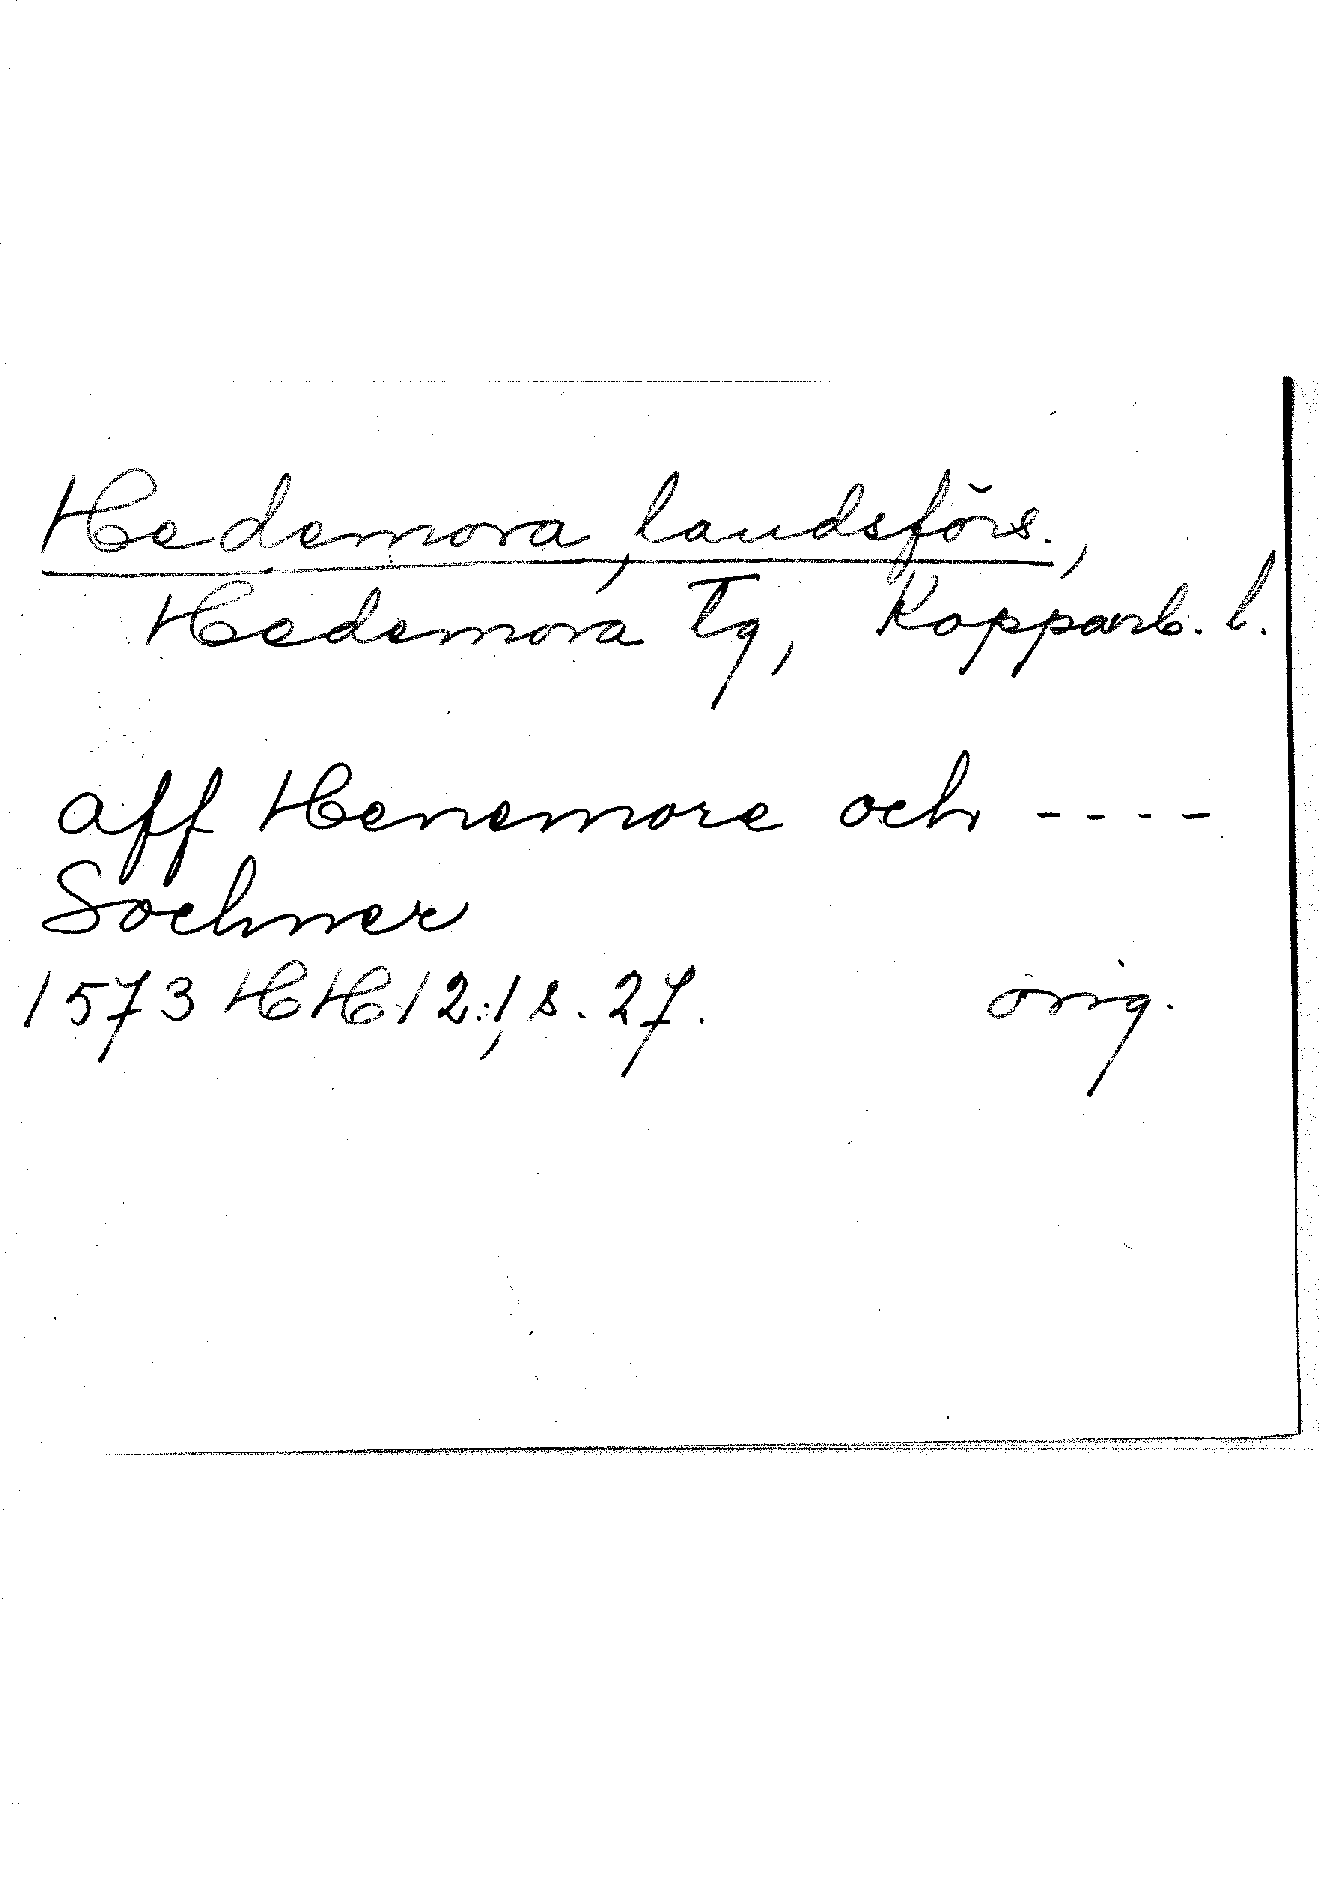 Hedemora, landsförs.,
Hedemora Tg, Kopparb. l.
aff Henemore och ----
Sochner
1573 HH 12:1, s. 27. orig.